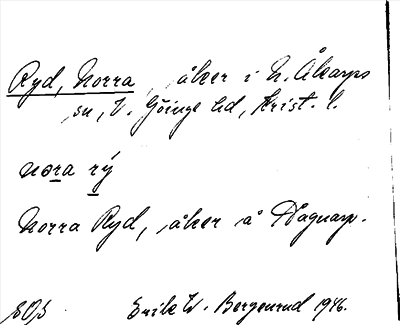 Ryd, Norra, åker i N. Åkarps
sn, V. Göinge hd, Krist. l.
nora rý
Norra Ryd, åker å Hagnarp.
Erik W. Bergenrud 1946.